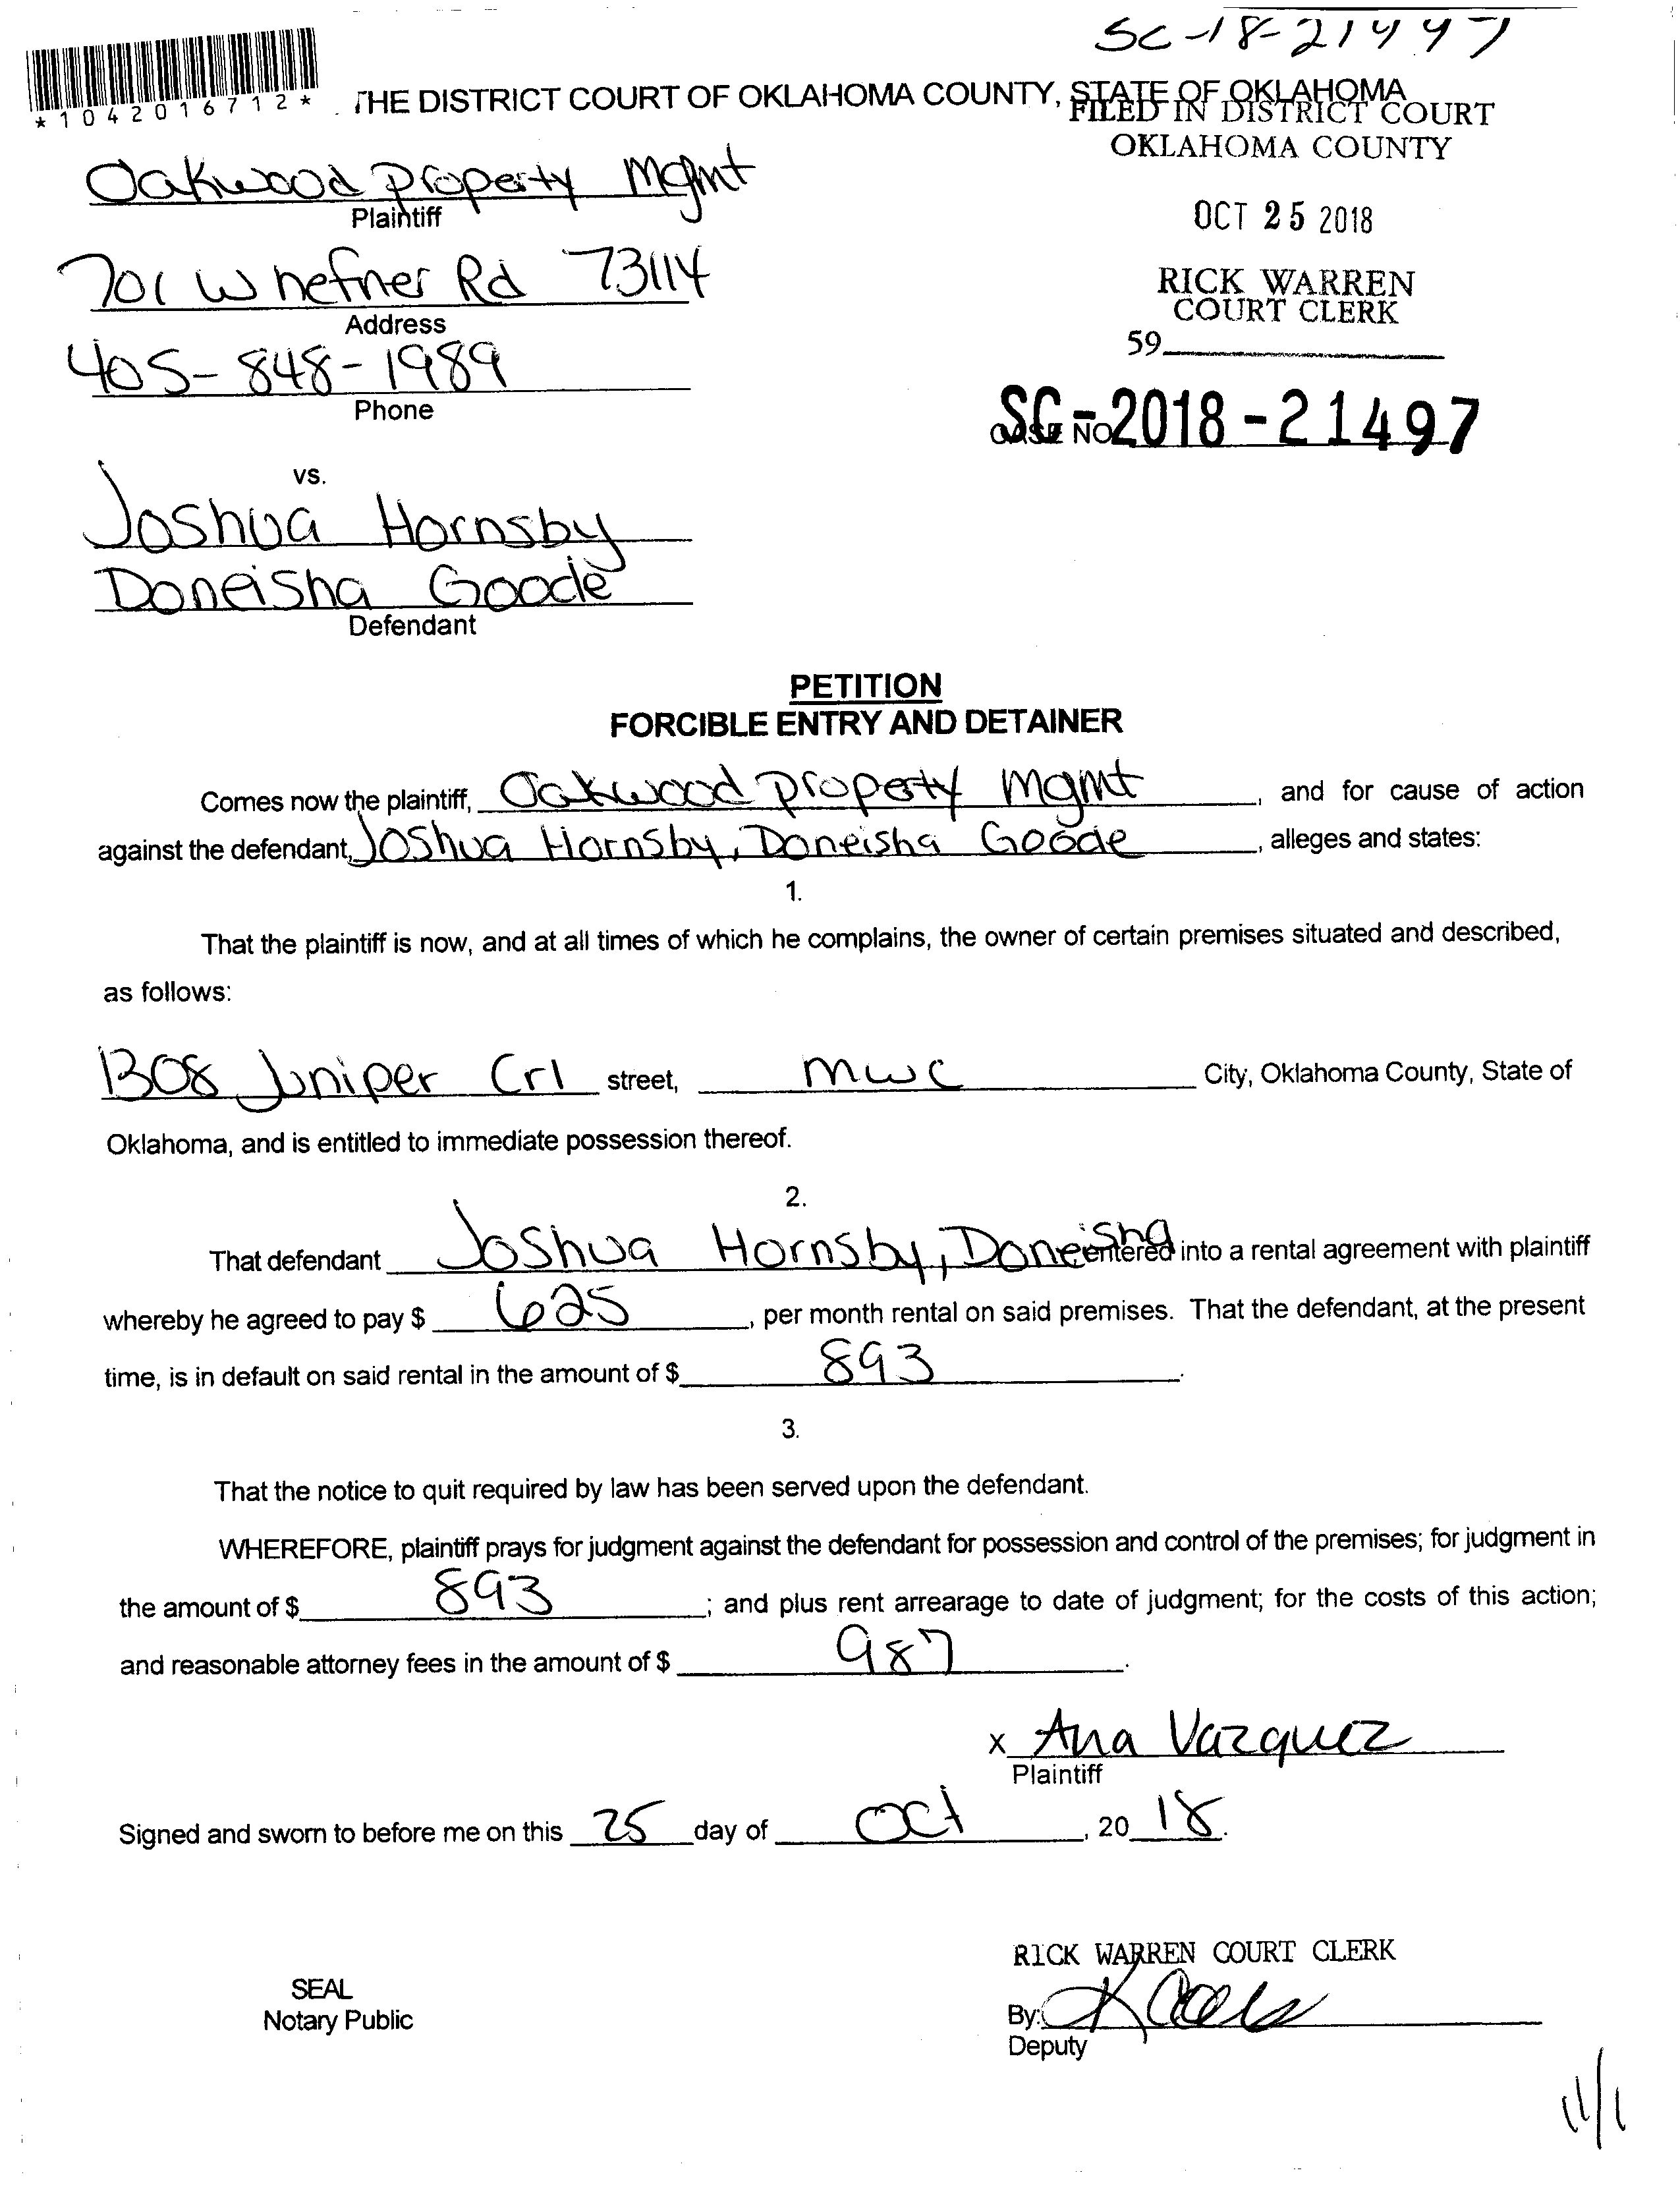 SC-18-21497
*1042016712*
THE DISTRICT COURT OF OKLAHOMA COUNTY, STATE OF OKLAHOMA
FILED IN DISTRICT COURT
OKLAHOMA COUNTY
Oakwood Property Mgmt
Plaintiff
OCT 25 2018
701 W hefner Rd 73114
Address
RICK WARREN
COURT CLERK
405-848-1989
Phone
59
SC-2018-21497
CASE NO
vs.
Joshua Hornsby
Doneisha Goode
Defendant
PETITION
FORCIBLE ENTRY AND DETAINER
Comes now the plaintiff, Oakwood Property Mgmt, and for cause of action
against the defendant, Joshua Hornsby, Doneisha Goode, alleges and states:
1.
That the plaintiff is now, and at all times of which he complains, the owner of certain premises situated and described,
as follows:
1308 Juniper Crl street, mwc City, Oklahoma County, State of
Oklahoma, and is entitled to immediate possession thereof.
2.
That defendant Joshua Hornsby, Doneisha entered into a rental agreement with plaintiff
whereby he agreed to pay $ 625, per month rental on said premises. That the defendant, at the present
time, is in default on said rental in the amount of $ 893.
3.
That the notice to quit required by law has been served upon the defendant.
WHEREFORE, plaintiff prays for judgment against the defendant for possession and control of the premises; for judgment in
the amount of $ 893; and plus rent arrearage to date of judgment; for the costs of this action;
and reasonable attorney fees in the amount of $ 987.
x Ana Vazquez
Plaintiff
Signed and sworn to before me on this 25 day of Oct, 20 18.
RICK WARREN COURT CLERK
SEAL
Notary Public
By:
Deputy
11/1